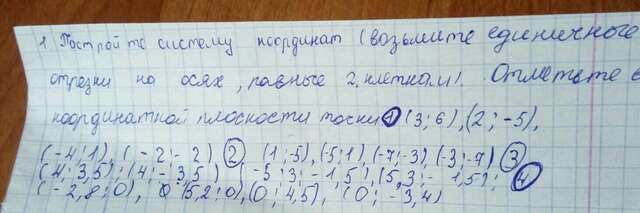 1. Постройте систему координат (возьмите единичные
отрезки на осях, равные 2 клеткам). Отметьте в
координатной плоскости точки 1 (3; 6), (2; -5),
(-4; 1), (-2; -2) 2 (1; -5), (-5; 1), (-7; -3), (-3; -7) 3
(4; 3,5); (4; -3,5) (-5; 3; -1,5), (5,3; -1,5); 4
(-2,8; 0), (5,2; 0), (0; 4,5), (0; -3,4)